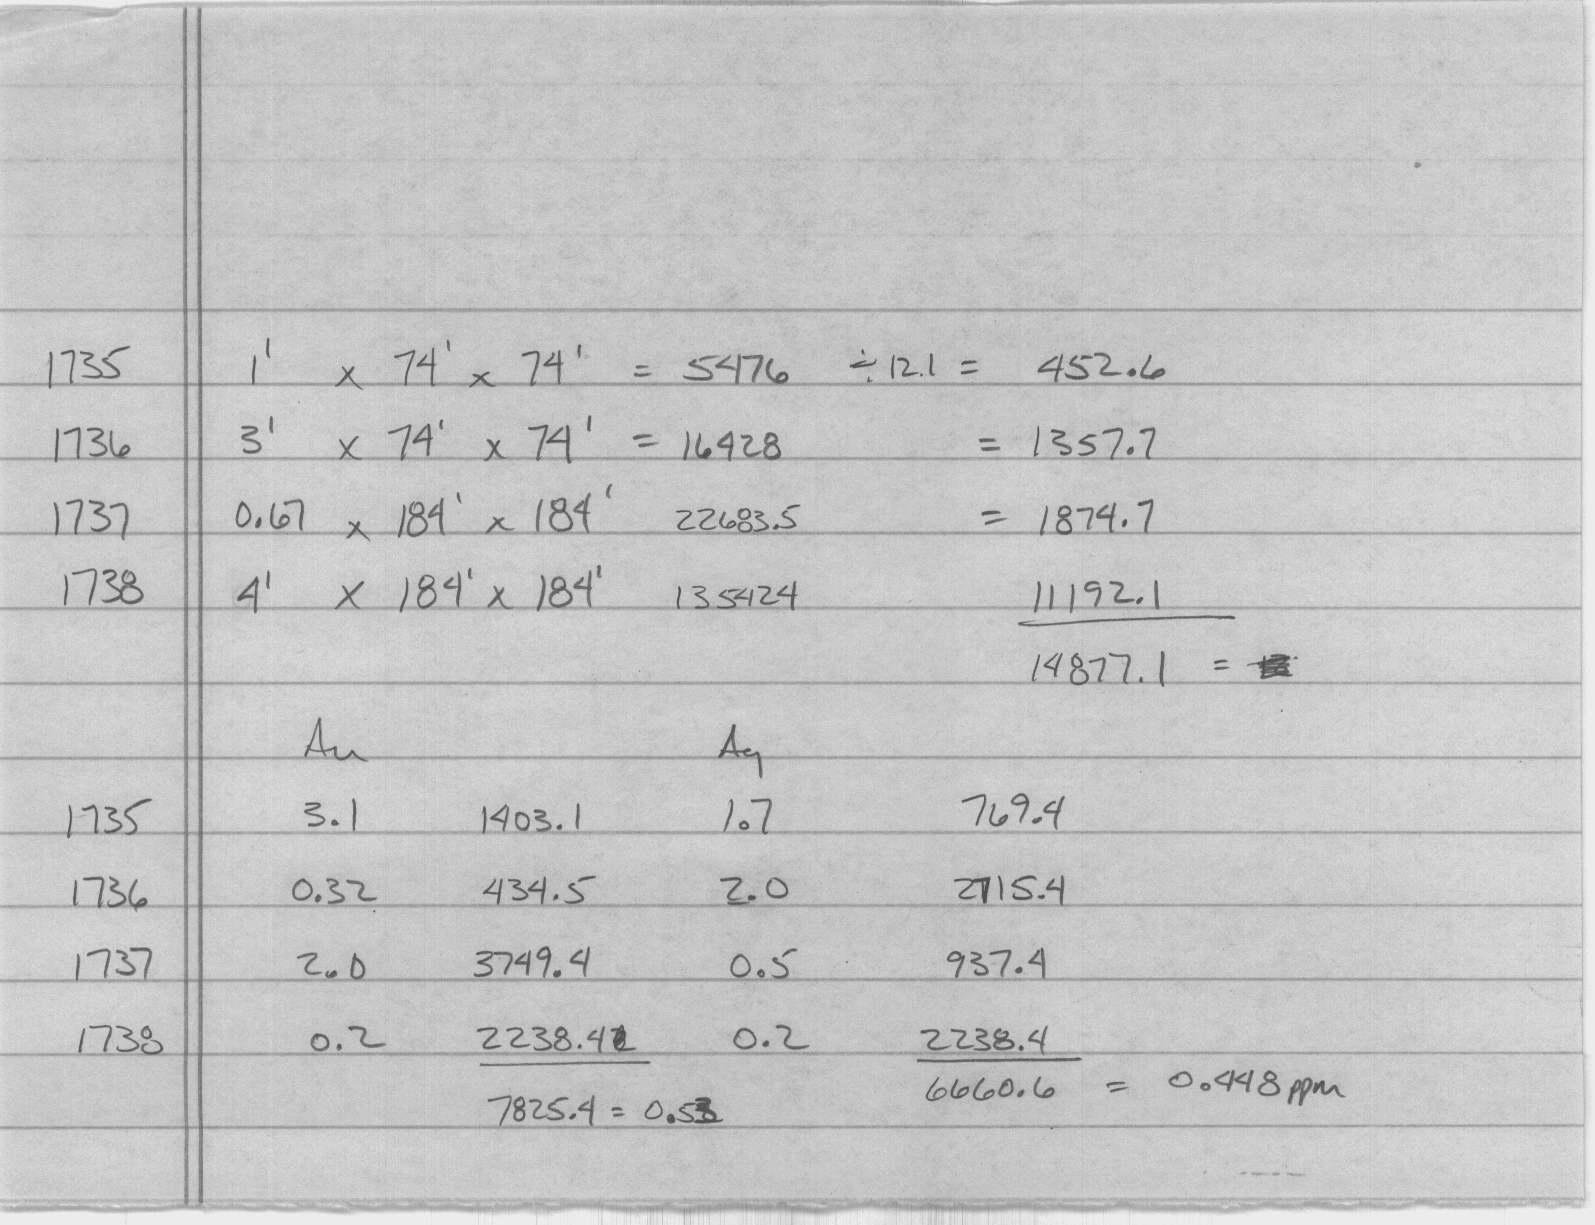 1735 1' x 74' x 74' = 5476 ÷ 12.1 = 452.6
1736 3' x 74' x 74' = 16428 = 1357.7
1737 0.67 x 184' x 184' 22683.5 = 1874.7
1738 4' x 184' x 184' 135424 11192.1
14877.1 =
Au Ag
1735 3.1 1403.1 1.7 769.4
1736 0.32 434.5 2.0 2715.4
1737 2.0 3749.4 0.5 937.4
1738 0.2 2238.4 0.2 2238.4
7825.4 = 0.53 6660.6 = 0.448 ppm